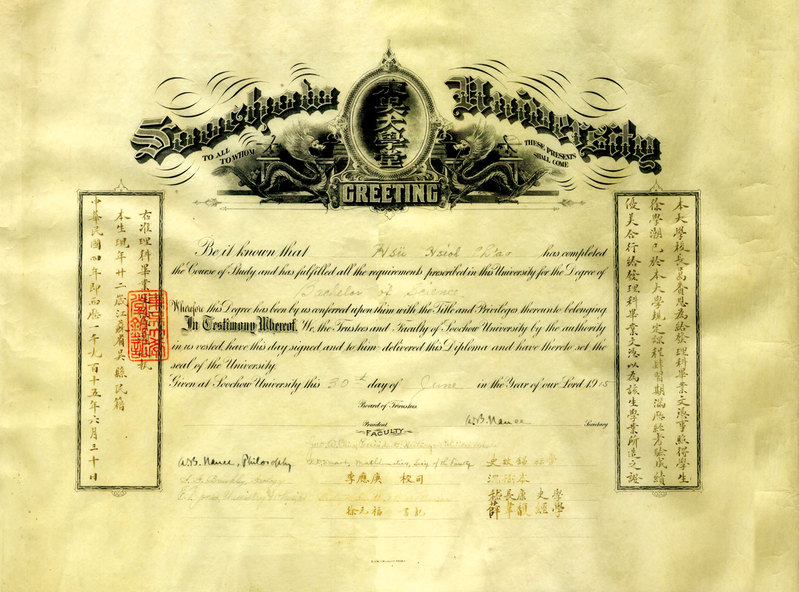 Soochow University
東吳大學堂
TO ALL TO WHOM
THESE PRESENTS SHALL COME
GREETING
本大學校長葛賚恩為給發理科畢業文憑事照得學生
徐學潮已於本大學規定課程肄習期滿應給考驗成績
優美合行給發理科畢業文憑以為該生學業所造之證
Be it known that Hsü Hsioh Chao has completed
the Course of Study and has fulfilled all the requirements prescribed in this University for the Degree of
Bachelor of Science
Wherefore this Degree has been by us conferred upon him with the Title and Privileges thereunto belonging
In Testimony Whereof, We, the Trustees and Faculty of Soochow University by the authority
in us vested, have this day signed and to him delivered this Diploma and have thereto set the
seal of the University.
Given at Soochow University this 30th day of June in the Year of our Lord 1915
Board of Trustees
President
W.B. Nance
Secretary
FACULTY
W.B. Nance, Philosophy
李應庚 校司
徐元福 書記
嵇長康 史學
薛 經學
右准理科畢業 執
本生現年廿二歲江蘇省吳縣民籍
中華民國四年即西歷一千九百十五年六月三十日